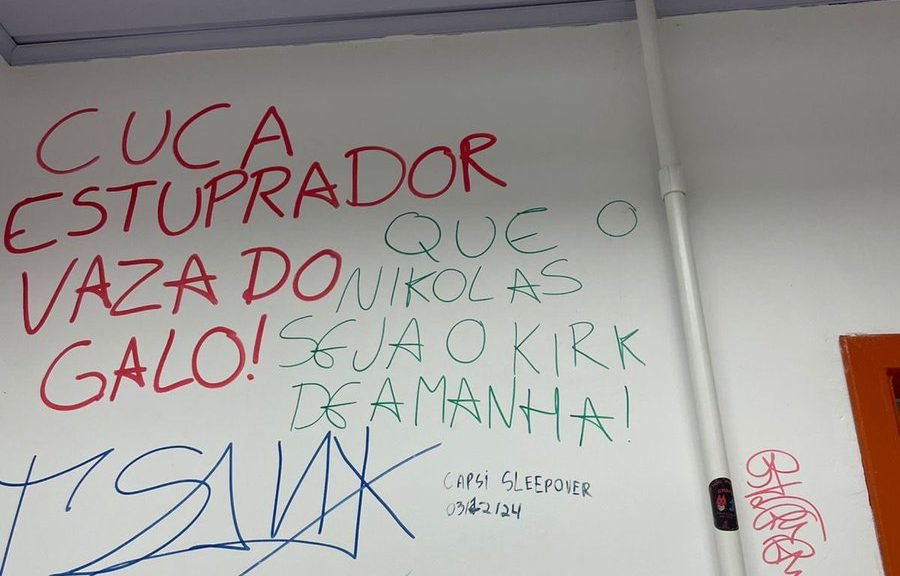 CUCA
ESTUPRADOR
VAZA DO
GALO!
QUE O
NIKOLAS
SEJA O KIRK
DE AMANHA!
CAPSI SLEEPOVER